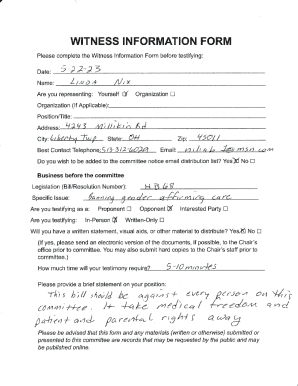 WITNESS INFORMATION FORM
Please complete the Witness Information Form before testifying:
Date: 5-22-23
Name: Linda Nix
Are you representing: Yourself ☑ Organization ☐
Organization (If Applicable):
Position/Title:
Address: 4243 Millikin Rd
City: Liberty Twp State: OH Zip: 45011
Best Contact Telephone: 513-312-6029 Email: @msn.com
Do you wish to be added to the committee notice email distribution list? Yes ☑ No ☐
Business before the committee
Legislation (Bill/Resolution Number): HB 68
Specific Issue: banning gender affirming care
Are you testifying as a: Proponent ☐ Opponent ☒ Interested Party ☐
Are you testifying: In-Person ☒ Written-Only ☐
Will you have a written statement, visual aids, or other material to distribute? Yes ☒ No ☐
(If yes, please send an electronic version of the documents, if possible, to the Chair's
office prior to committee. You may also submit hard copies to the Chair's staff prior to
committee.)
How much time will your testimony require? 5-10 minutes
Please provide a brief statement on your position:
This bill should be against every person on this
committee. It take medical freedom and
patient and parental rights away
Please be advised that this form and any materials (written or otherwise) submitted or
presented to this committee are records that may be requested by the public and may
be published online.